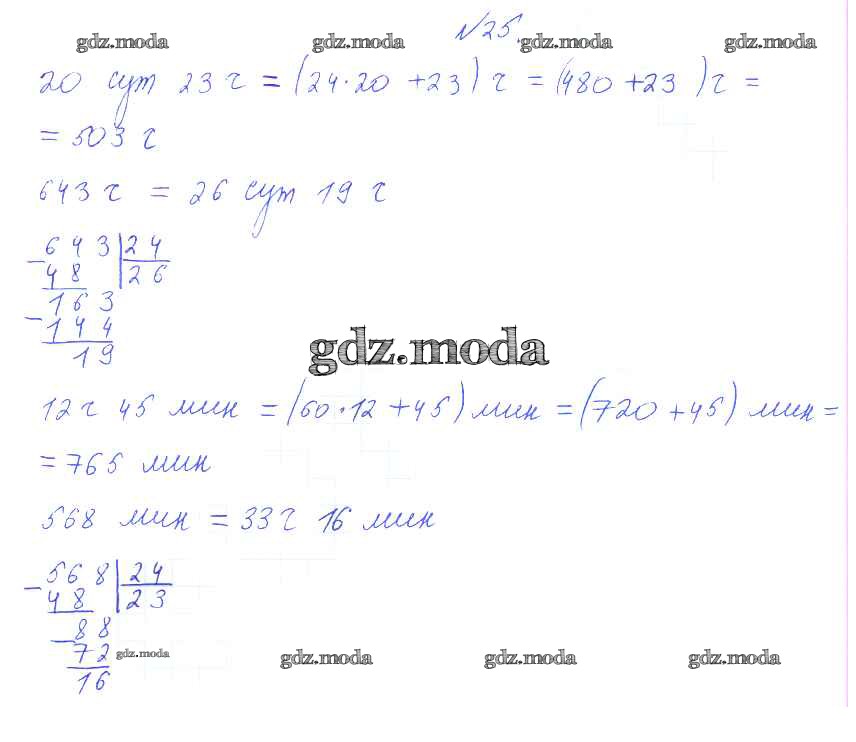 №25.
gdz.moda gdz.moda gdz.moda gdz.moda
20 сут 23 ч = (24·20 +23) ч = (480 +23 ) ч =
= 503 ч
643 ч = 26 сут 19 ч
- 643 | 24
48 | 26
163
- 144
19
gdz.moda
12 ч 45 мин = (60·12 +45) мин = (720 +45) мин =
= 765 мин
568 мин = 33 ч 16 мин
- 568 | 24
48 | 23
- 88
72
16
gdz.moda gdz.moda gdz.moda gdz.moda